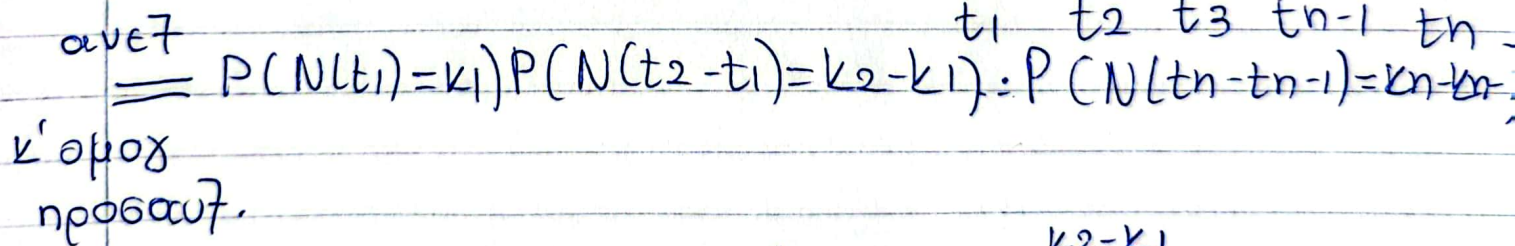 t1 t2 t3 tn-1 tn
ανεξ
= P(N(t1)=k1)P(N(t2-t1)=k2-k1):P(N(tn-tn-1)=kn-kn-
κ' ομογ
προσαυξ.
k2-k1